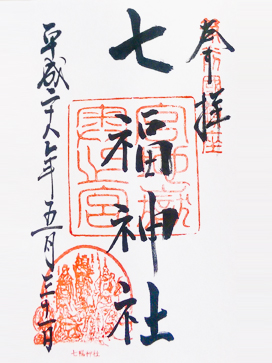 奉拝
七福神社
平成二十八年五月三十一日
七福神社